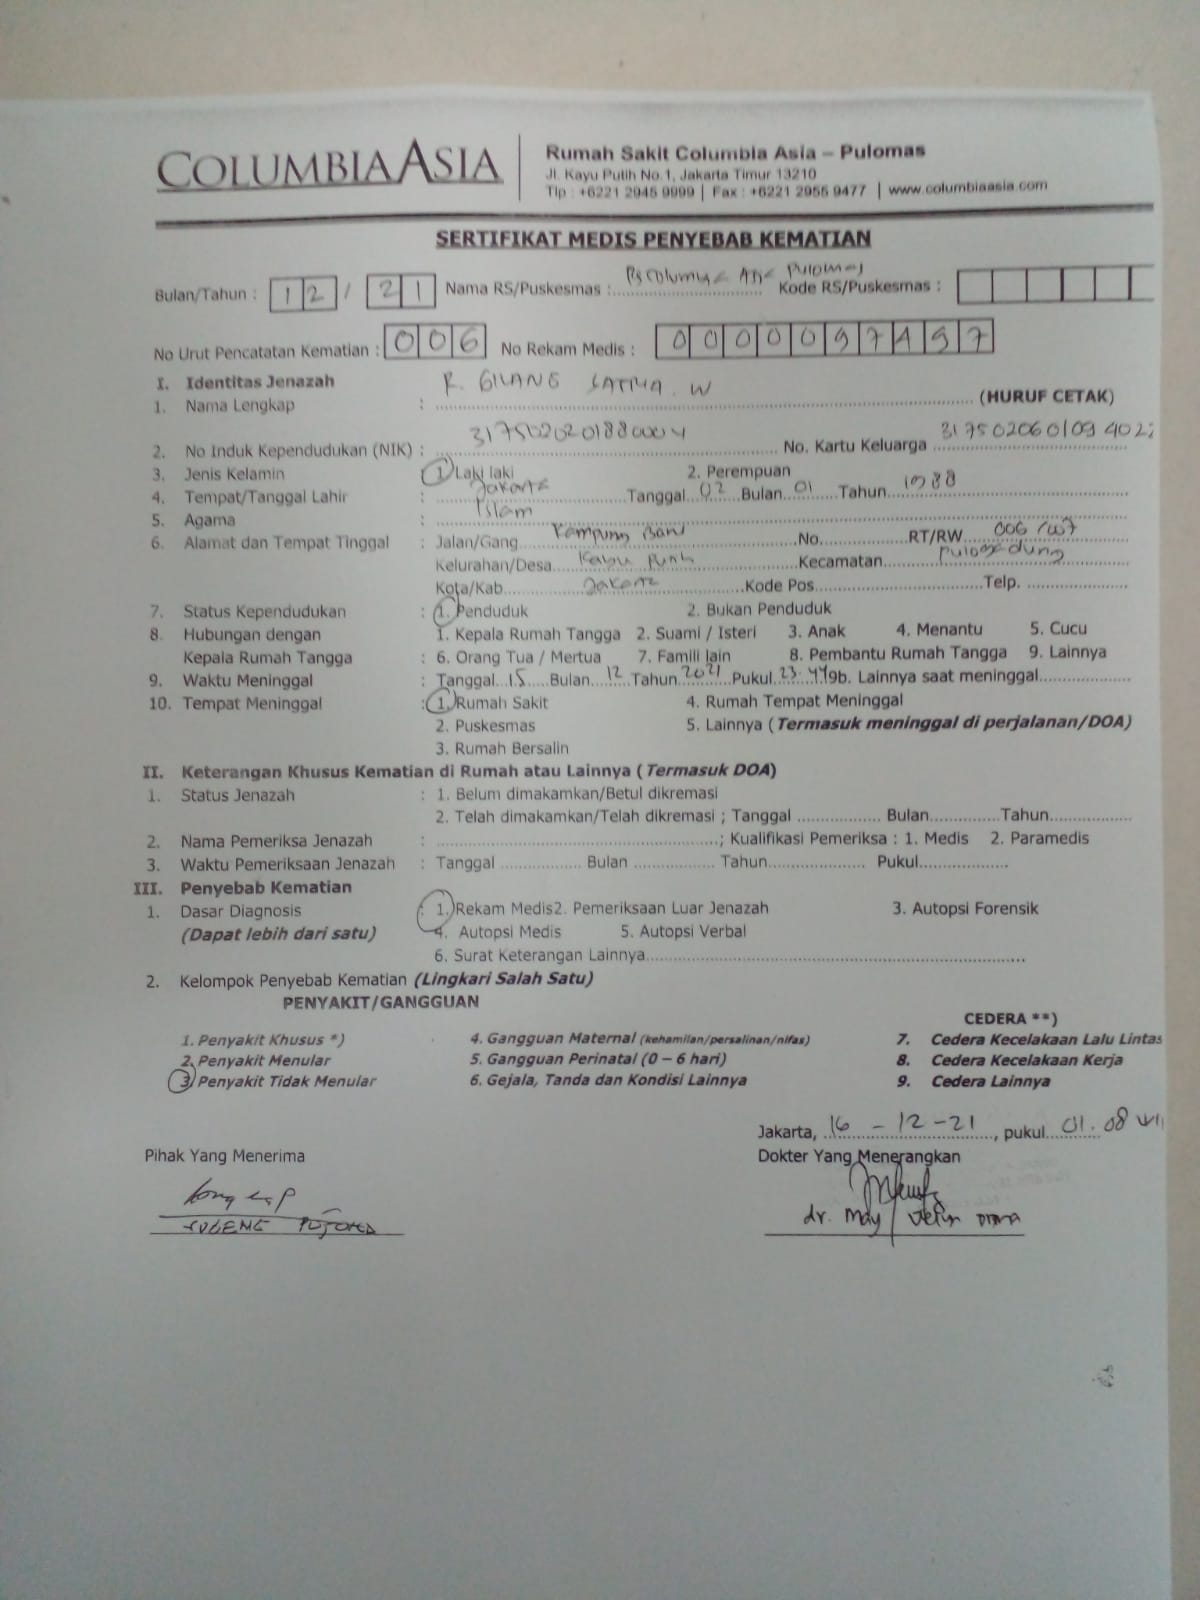 COLUMBIA ASIA
Rumah Sakit Columbia Asia – Pulomas
Jl. Kayu Putih No.1, Jakarta Timur 13210
Tlp : +6221 2945 9999 | Fax : +6221 2955 9477 | www.columbiaasia.com
SERTIFIKAT MEDIS PENYEBAB KEMATIAN
Bulan/Tahun : 12 / 21 Nama RS/Puskesmas : Kode RS/Puskesmas :
No Urut Pencatatan Kematian : 006 No Rekam Medis :
I. Identitas Jenazah
1. Nama Lengkap : R. GILANG SATRYA. W (HURUF CETAK)
2. No Induk Kependudukan (NIK) : 3175020201880004 No. Kartu Keluarga
3. Jenis Kelamin 1. Laki laki 2. Perempuan
4. Tempat/Tanggal Lahir : Jakarta Tanggal 02 Bulan 01 Tahun 1988
5. Agama : Islam
6. Alamat dan Tempat Tinggal : Jalan/Gang Kampung Baru No. RT/RW 006/007
Kelurahan/Desa Kayu Putih Kecamatan Pulogadung
Kota/Kab Jakarta Kode Pos Telp.
7. Status Kependudukan : 1. Penduduk 2. Bukan Penduduk
8. Hubungan dengan 1. Kepala Rumah Tangga 2. Suami / Isteri 3. Anak 4. Menantu 5. Cucu
Kepala Rumah Tangga : 6. Orang Tua / Mertua 7. Famili lain 8. Pembantu Rumah Tangga 9. Lainnya
9. Waktu Meninggal : Tanggal 15 Bulan 12 Tahun 2021 Pukul 23.44 9b. Lainnya saat meninggal
10. Tempat Meninggal : 1. Rumah Sakit 4. Rumah Tempat Meninggal
2. Puskesmas 5. Lainnya ( Termasuk meninggal di perjalanan/DOA)
3. Rumah Bersalin
II. Keterangan Khusus Kematian di Rumah atau Lainnya ( Termasuk DOA)
1. Status Jenazah : 1. Belum dimakamkan/Betul dikremasi
2. Telah dimakamkan/Telah dikremasi ; Tanggal Bulan Tahun
2. Nama Pemeriksa Jenazah : ; Kualifikasi Pemeriksa : 1. Medis 2. Paramedis
3. Waktu Pemeriksaan Jenazah : Tanggal Bulan Tahun Pukul
III. Penyebab Kematian
1. Dasar Diagnosis : 1. Rekam Medis2. Pemeriksaan Luar Jenazah 3. Autopsi Forensik
(Dapat lebih dari satu) 4. Autopsi Medis 5. Autopsi Verbal
6. Surat Keterangan Lainnya
2. Kelompok Penyebab Kematian (Lingkari Salah Satu)
PENYAKIT/GANGGUAN
CEDERA **)
1. Penyakit Khusus *) 4. Gangguan Maternal (kehamilan/persalinan/nifas) 7. Cedera Kecelakaan Lalu Lintas
2. Penyakit Menular 5. Gangguan Perinatal (0 – 6 hari) 8. Cedera Kecelakaan Kerja
3. Penyakit Tidak Menular 6. Gejala, Tanda dan Kondisi Lainnya 9. Cedera Lainnya
Jakarta, 16 - 12 - 21, pukul 01.08
Pihak Yang Menerima Dokter Yang Menerangkan
dr. May /